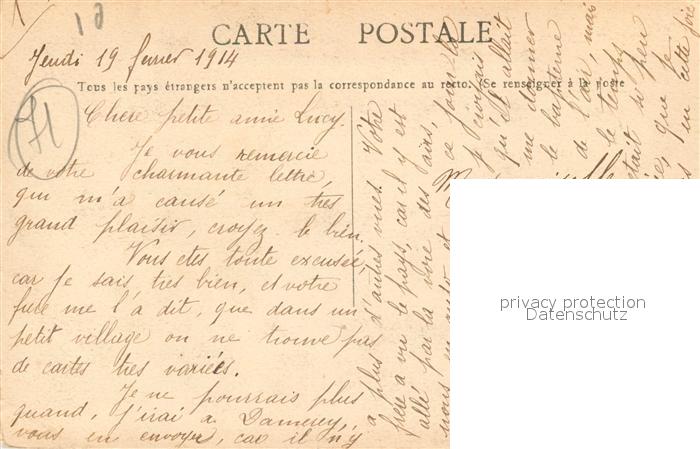 10
CARTE POSTALE
Jeudi 19 fevrier 1914
Tous les pays étrangers n'acceptent pas la correspondance au recto. (Se renseigner à la poste
71
Chere petite amie Lucy.
Je vous remercie
de votre charmante lettre,
qui m'a causé un tres
grand plaisir, croyez-le bien.
Vous etes toute excusée,
car je sais tres bien, et votre
frere me l'a dit, que dans un
petit village on ne trouve pas
de cartes tres variées.
Je ne pourrais plus
quand, j'irai a Damerey,
vous en envoyer, car il n'y
a plus d'autres vues. Votre
frere a vu le pays, car il y est
allé par la voie des airs,
ce jour-là
M. 
je croyais
qu'il allait
me donner
le bapteme
de l'air, mais
le temps
était si peu
que je
en cette fois
privacy protection
Datenschutz